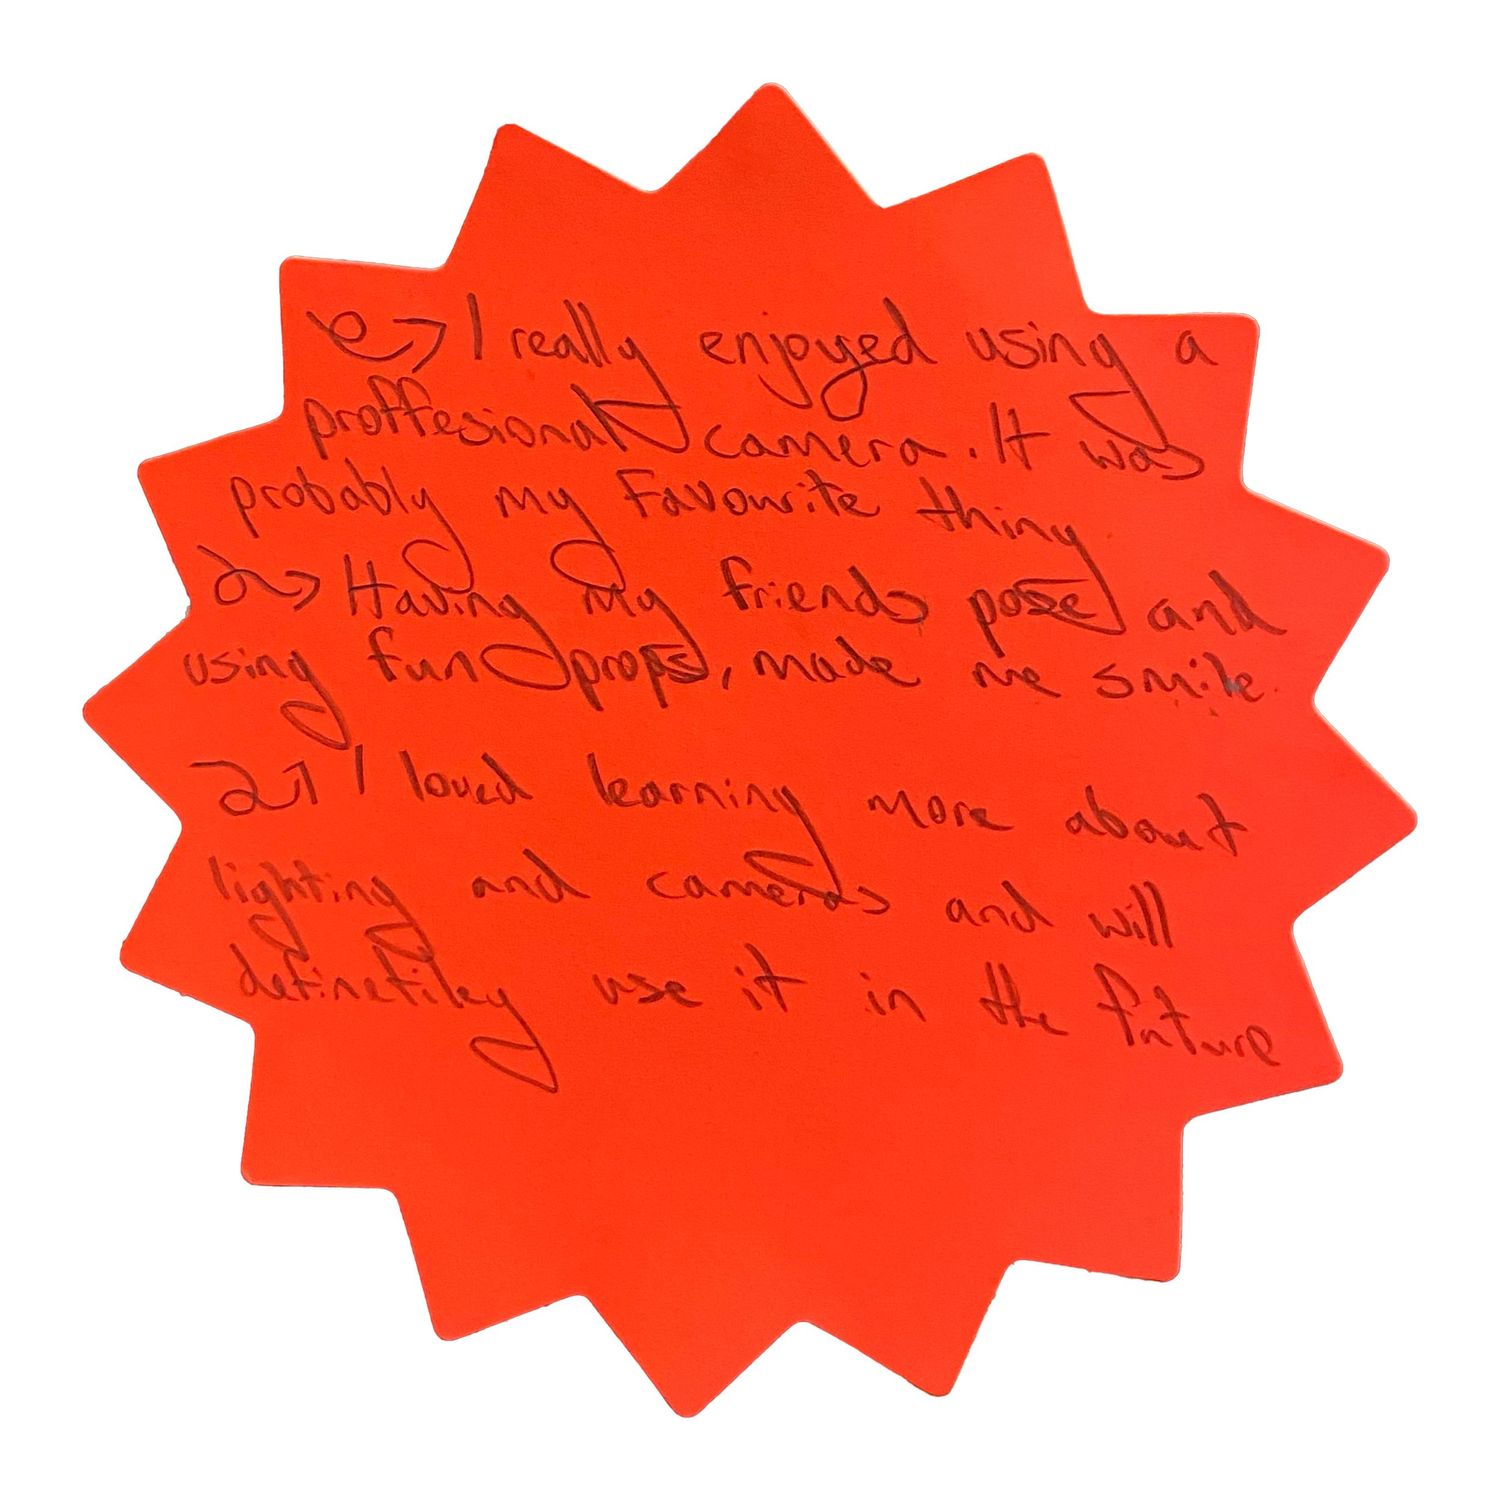 → I really enjoyed using a
proffesional camera. It was
probably my Favourite thing
→ Having my friends pose and
using fun props, made me smile.
→ I loved learning more about
lighting and cameras and will
definetiley use it in the future